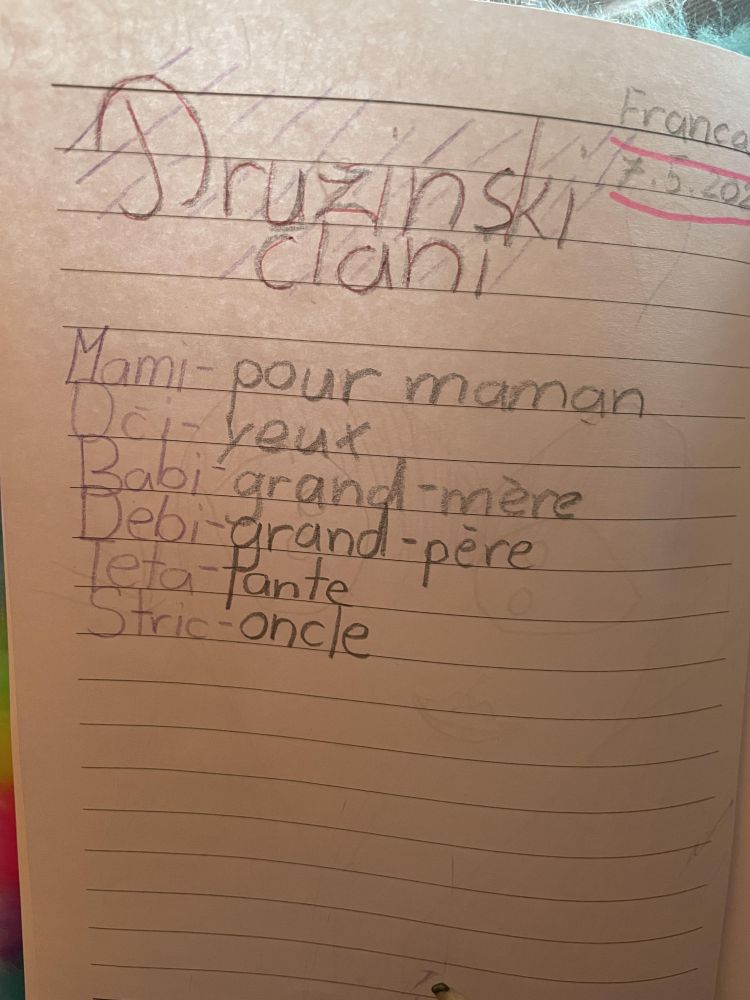 Družinski
člani
Franca
7.5.202
Mami- pour maman
Oči- yeux
Babi-grand-mère
Debi-grand-père
Teta-tante
Stric-oncle